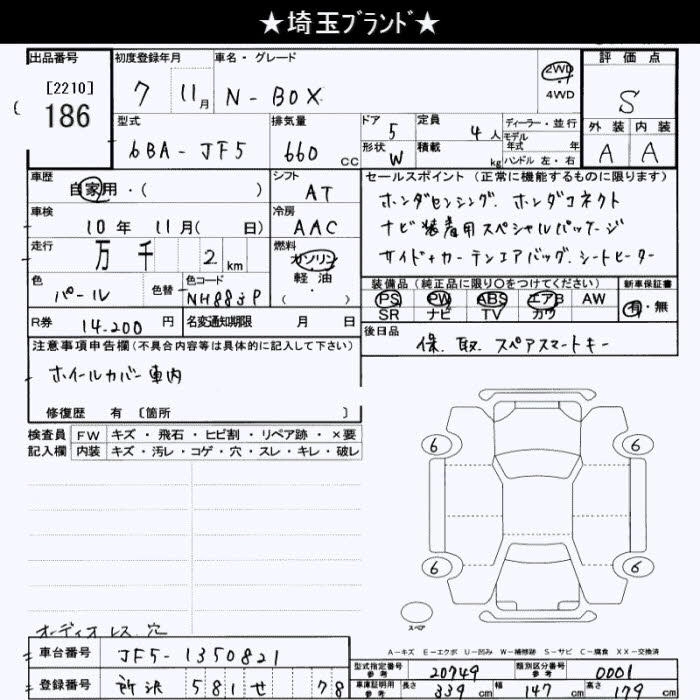 ★埼玉ﾌﾞﾗﾝﾄﾞ★
出品番号
[2210]
186
初度登録年月
7 11月
車名・グレード
N-BOX
2WD
4WD
評価点
S
外装 内装
A A
型式
6BA-JF5
排気量
660 cc
ドア
5
形状
W
定員
4人
積載
kg
ディーラー・並行
モデル
年式 年
ハンドル 左・右
車歴
自家用・( )
シフト
AT
車検
10年 11月( 日)
冷房
AAC
走行
万 千 2 km
燃料
ガソリン
軽油
( ・ )
色
パール
色替
色コード
NH883P
R券
14.200 円
名変通知期限 月 日
セールスポイント(正常に機能するものに限ります)
ホンダセンシング. ホンダコネクト
ナビ装着用スペシャルパッケージ
サイド+カーテンエアバッグ. シートヒーター
装備品(純正品に限り○をつけてください)
PS PW ABS エアB AW
SR ナビ TV カワ
新車保証書
有・無
後日品
保. 取. スペアスマートキー
注意事項申告欄(不具合内容等は具体的に記入して下さい)
ホイールカバー車内
修復歴 有 〔箇所 〕
検査員 FW キズ・飛石・ヒビ割・リペア跡・×要
記入欄 内装 キズ・汚レ・コゲ・穴・スレ・キレ・破レ
6 6
6 6
スペア
A-キズ E-エクボ U-凹み W-補修跡 S-サビ C-腐食 XX-交換済
オーディオレス穴
車台番号 JF5-1350821
登録番号 所沢 581 せ 78
型式指定番号
参考
20749
類別区分番号
参考
0001
車庫証明用
参考
長さ 339 cm 幅 147 cm 高さ 179 cm